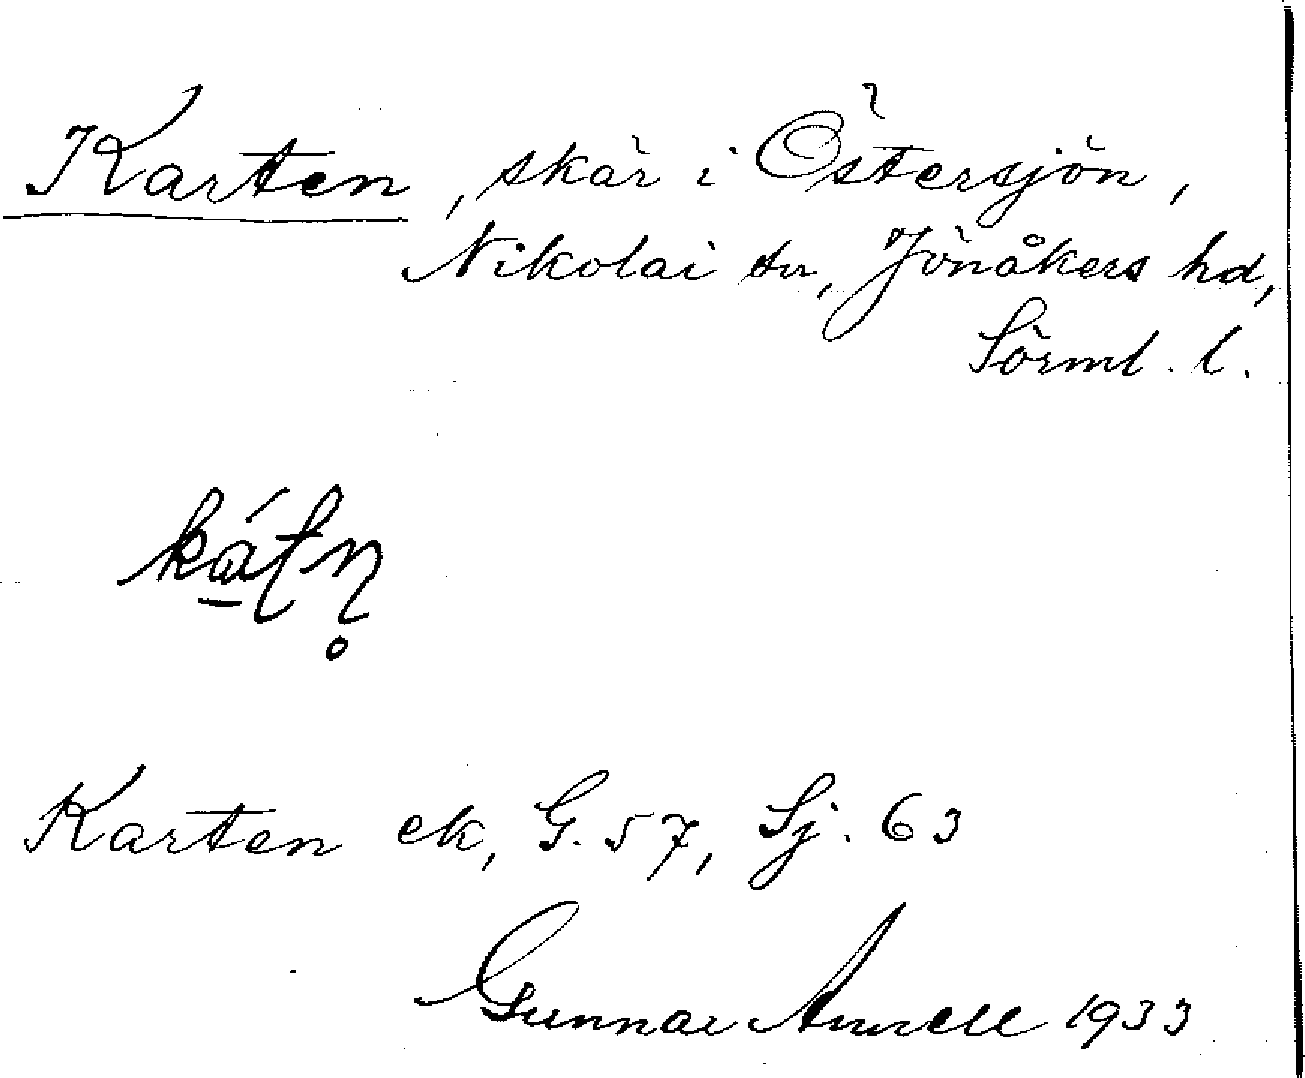 Karten, skär i Östersjön,
Nikolai sn, Jönåkers hd,
Sörml. l.
Karten ek, G. 57, Sj. 63
Gunnar 1933